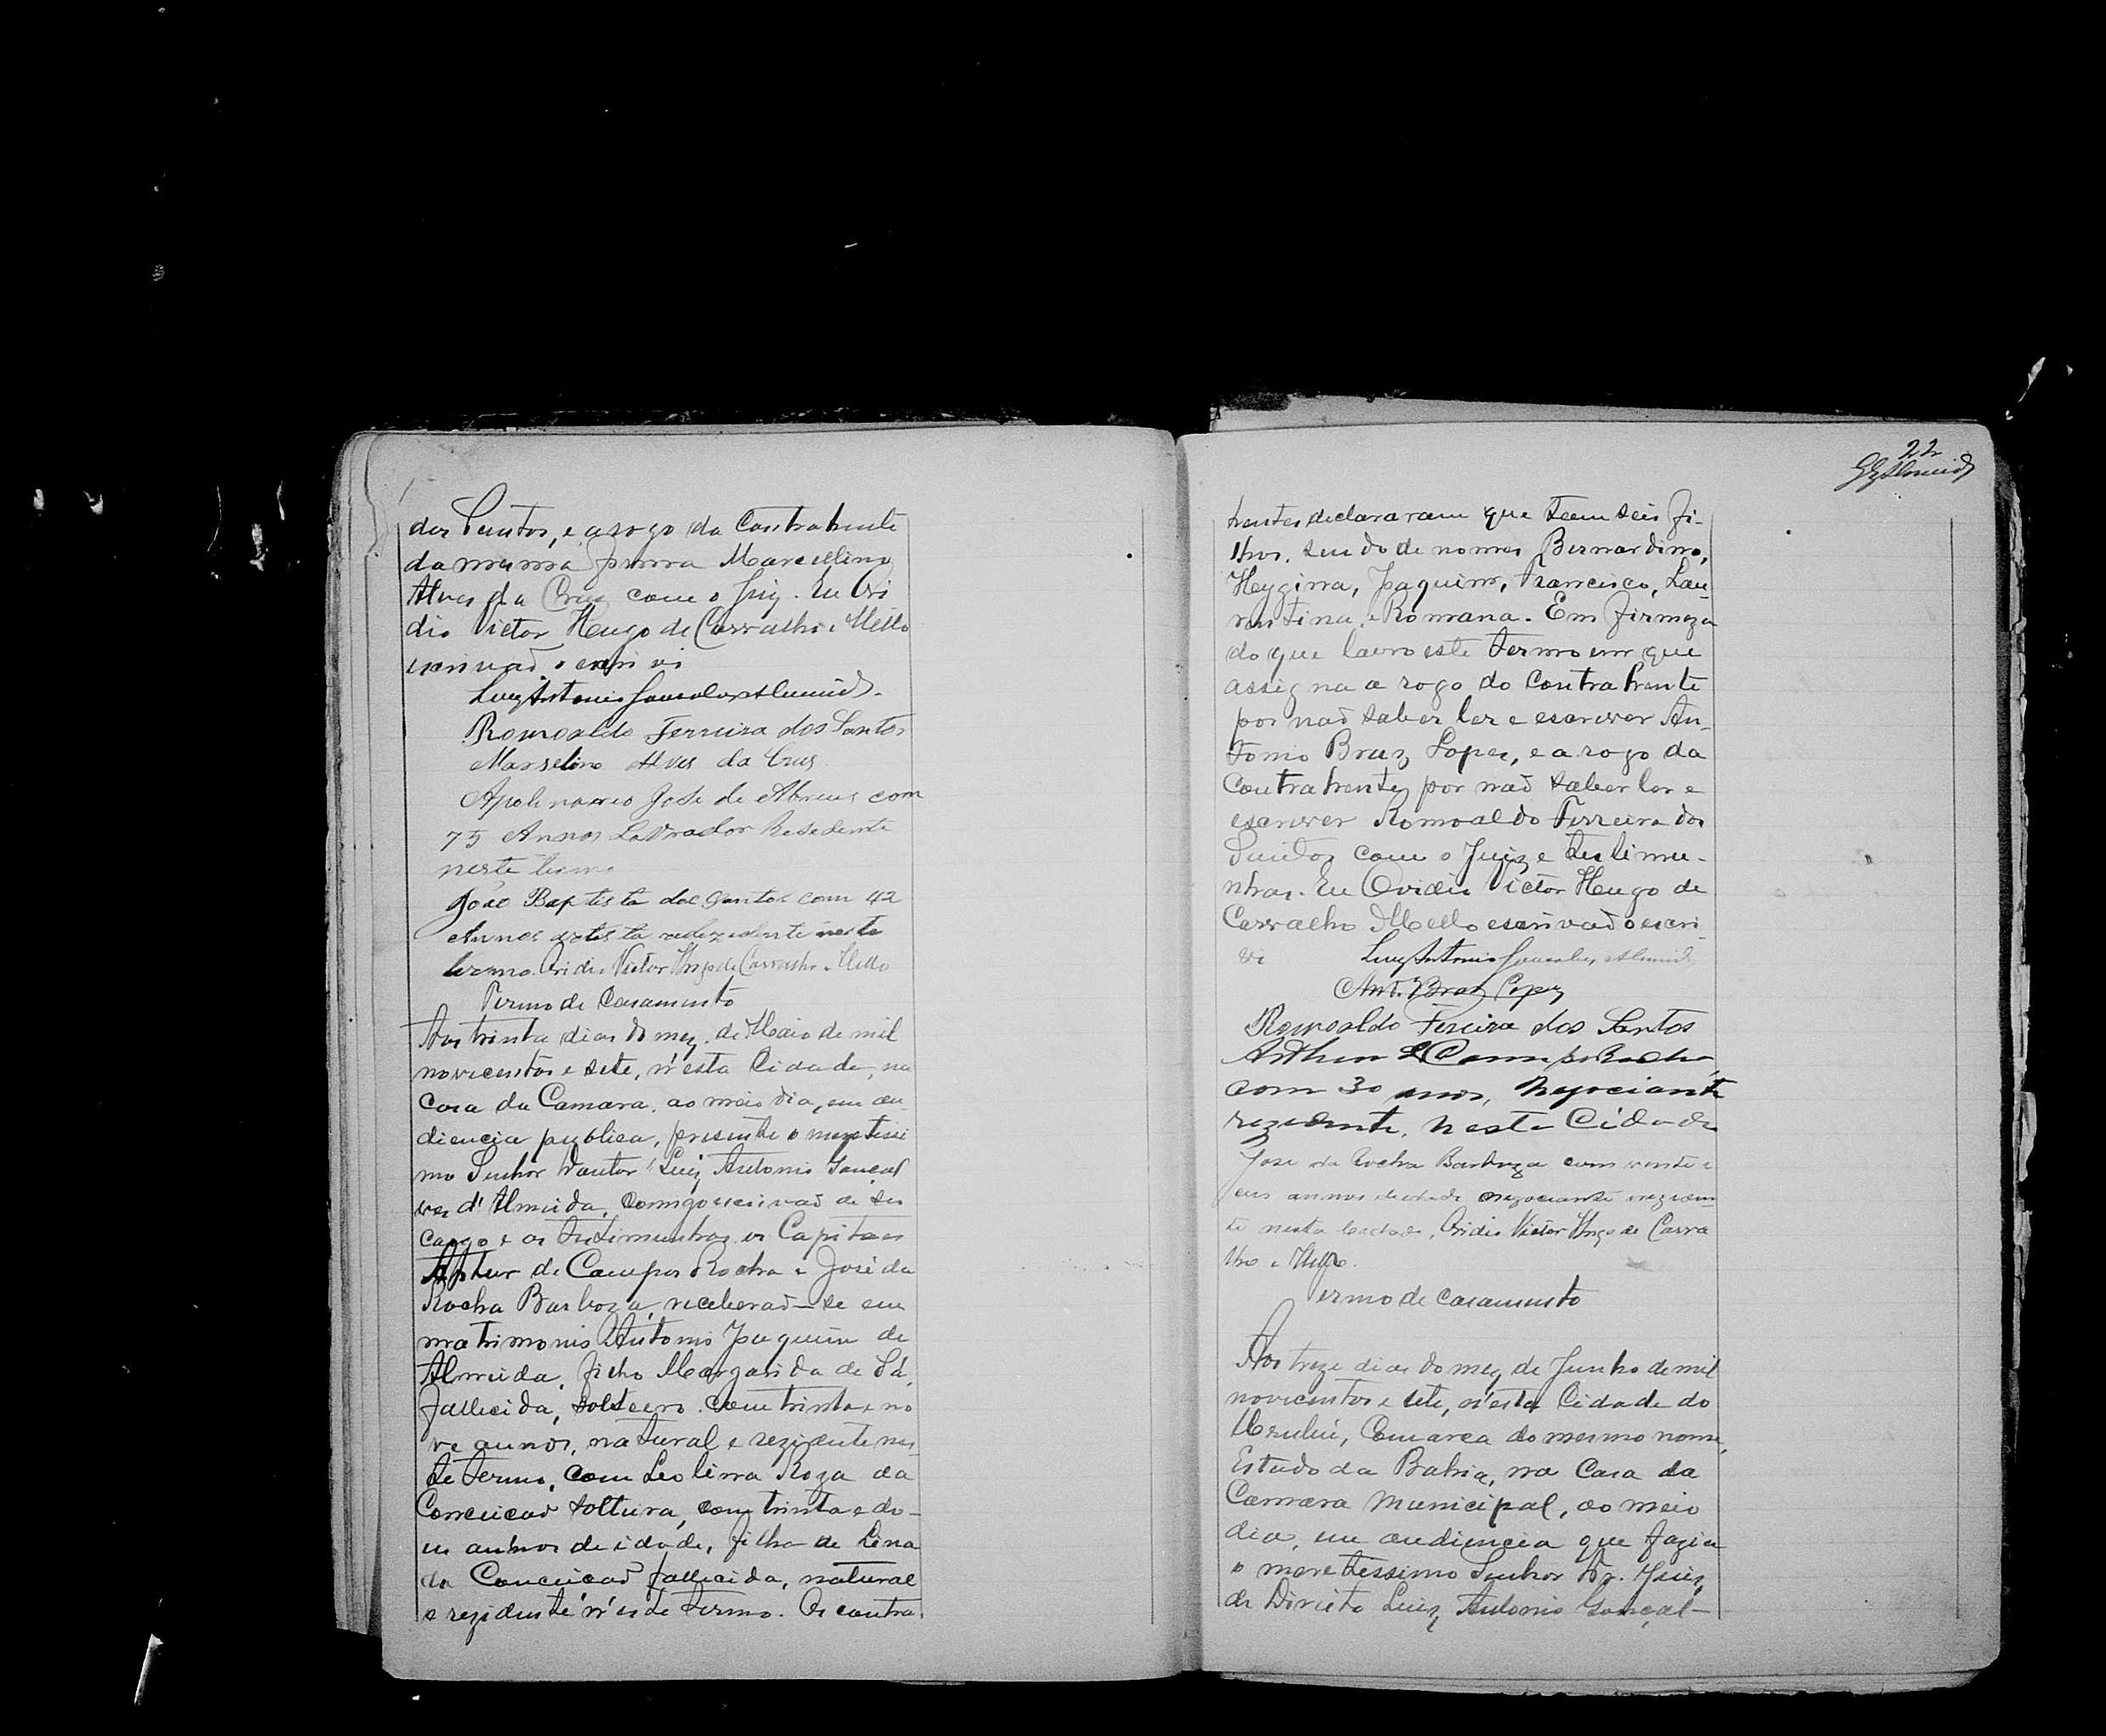 dos Santos, e a rogo da Contrahente
da mesma forma Marcellino
Alves da Cruz com o Juiz. Eu Ovi
dio Victor Hugo de Carvalho e Mello
escrivaõ o escrivi
Luiz Antonio Gonsalves Almeida.
Romoaldo Ferreira dos Santos
Marselino Alves da Crus
Apolinario Jose de Abreus com
75 Annos Lavrador Resedente
neste termo
João Baptista dos Santos com 42
Annos artista rezidente neste
termo. Ovidio Victor Hugo de Carvalho e Mello
Termo de Casamento
Aos trinta dias do mez de Maio de mil
novecentos e sete, n'esta Cidade, na
Casa da Camara, ao meio dia, em au-
diencia publica, presente o meretissi
mo Senhor Doutor Luiz Antonio Gonçal
ves d'Almeida, comigo escrivaõ de seu
cargo e as testimunhas os Capitaes
Arthur de Campos Rocha e José da
Rocha Barboza, receberaõ-se em
matrimonio Antonio Joaquim de
Almeida, filho Margarida de Sá,
fallecida, solteiro com trinta e no
ve annos, natural e rezidente nes-
te termo, com Leolina Roza da
Conceicaõ solteira, com trinta e do-
is annos de idade, filha de Lina
da Conceicaõ fallecida, natural
e rezidente n'este termo. Os contra-
22
GLzAlmeida
hentes declararam que teem seis fi-
lhos, sendo de nomes Bernardino,
Heygina, Joaquim, Francisco, Lau-
rentina, e Romana. Em firmeza
do que lavro este termo em que
assigna a rogo do Contrahente
por naõ saber ler e escrever An-
tonio Braz Lopes, e a rogo da
Contrahente por naõ saber ler e
escrever Romoaldo Ferreira dos
Santos com o Juiz e testimu-
nhas. Eu Ovidio Victor Hugo de
Carvalho e Mello escrivaõ o escri
vi Luiz Antonio Gonsalves Almeida
Ant.º Braz Lopes
Romoaldo Fereira dos Santos
Arthur de Campos Rocha,
com 30 anos, Negociante
rezidente, nesta Cidade
Jose da Rocha Barboza com vinte e
seis annos de idade negociante reziden-
te nesta Cidade, Ovidio Victor Hugo de Carva
lho e Mello.
Termo de casamento
Aos treze dias do mez de Junho de mil
novecentos e sete, n'esta Cidade do
Urubú, Comarca do mesmo nome,
Estado da Bahia, na Casa da
Camara Municipal, ao meio
dia, em audiencia que fazia
o meretissimo Senhor Dr. Juiz
de Direito Luiz Antonio Gonçal-